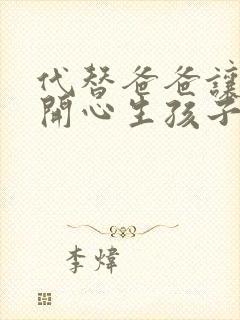 代替爸爸讓
開心生孩子
李煒